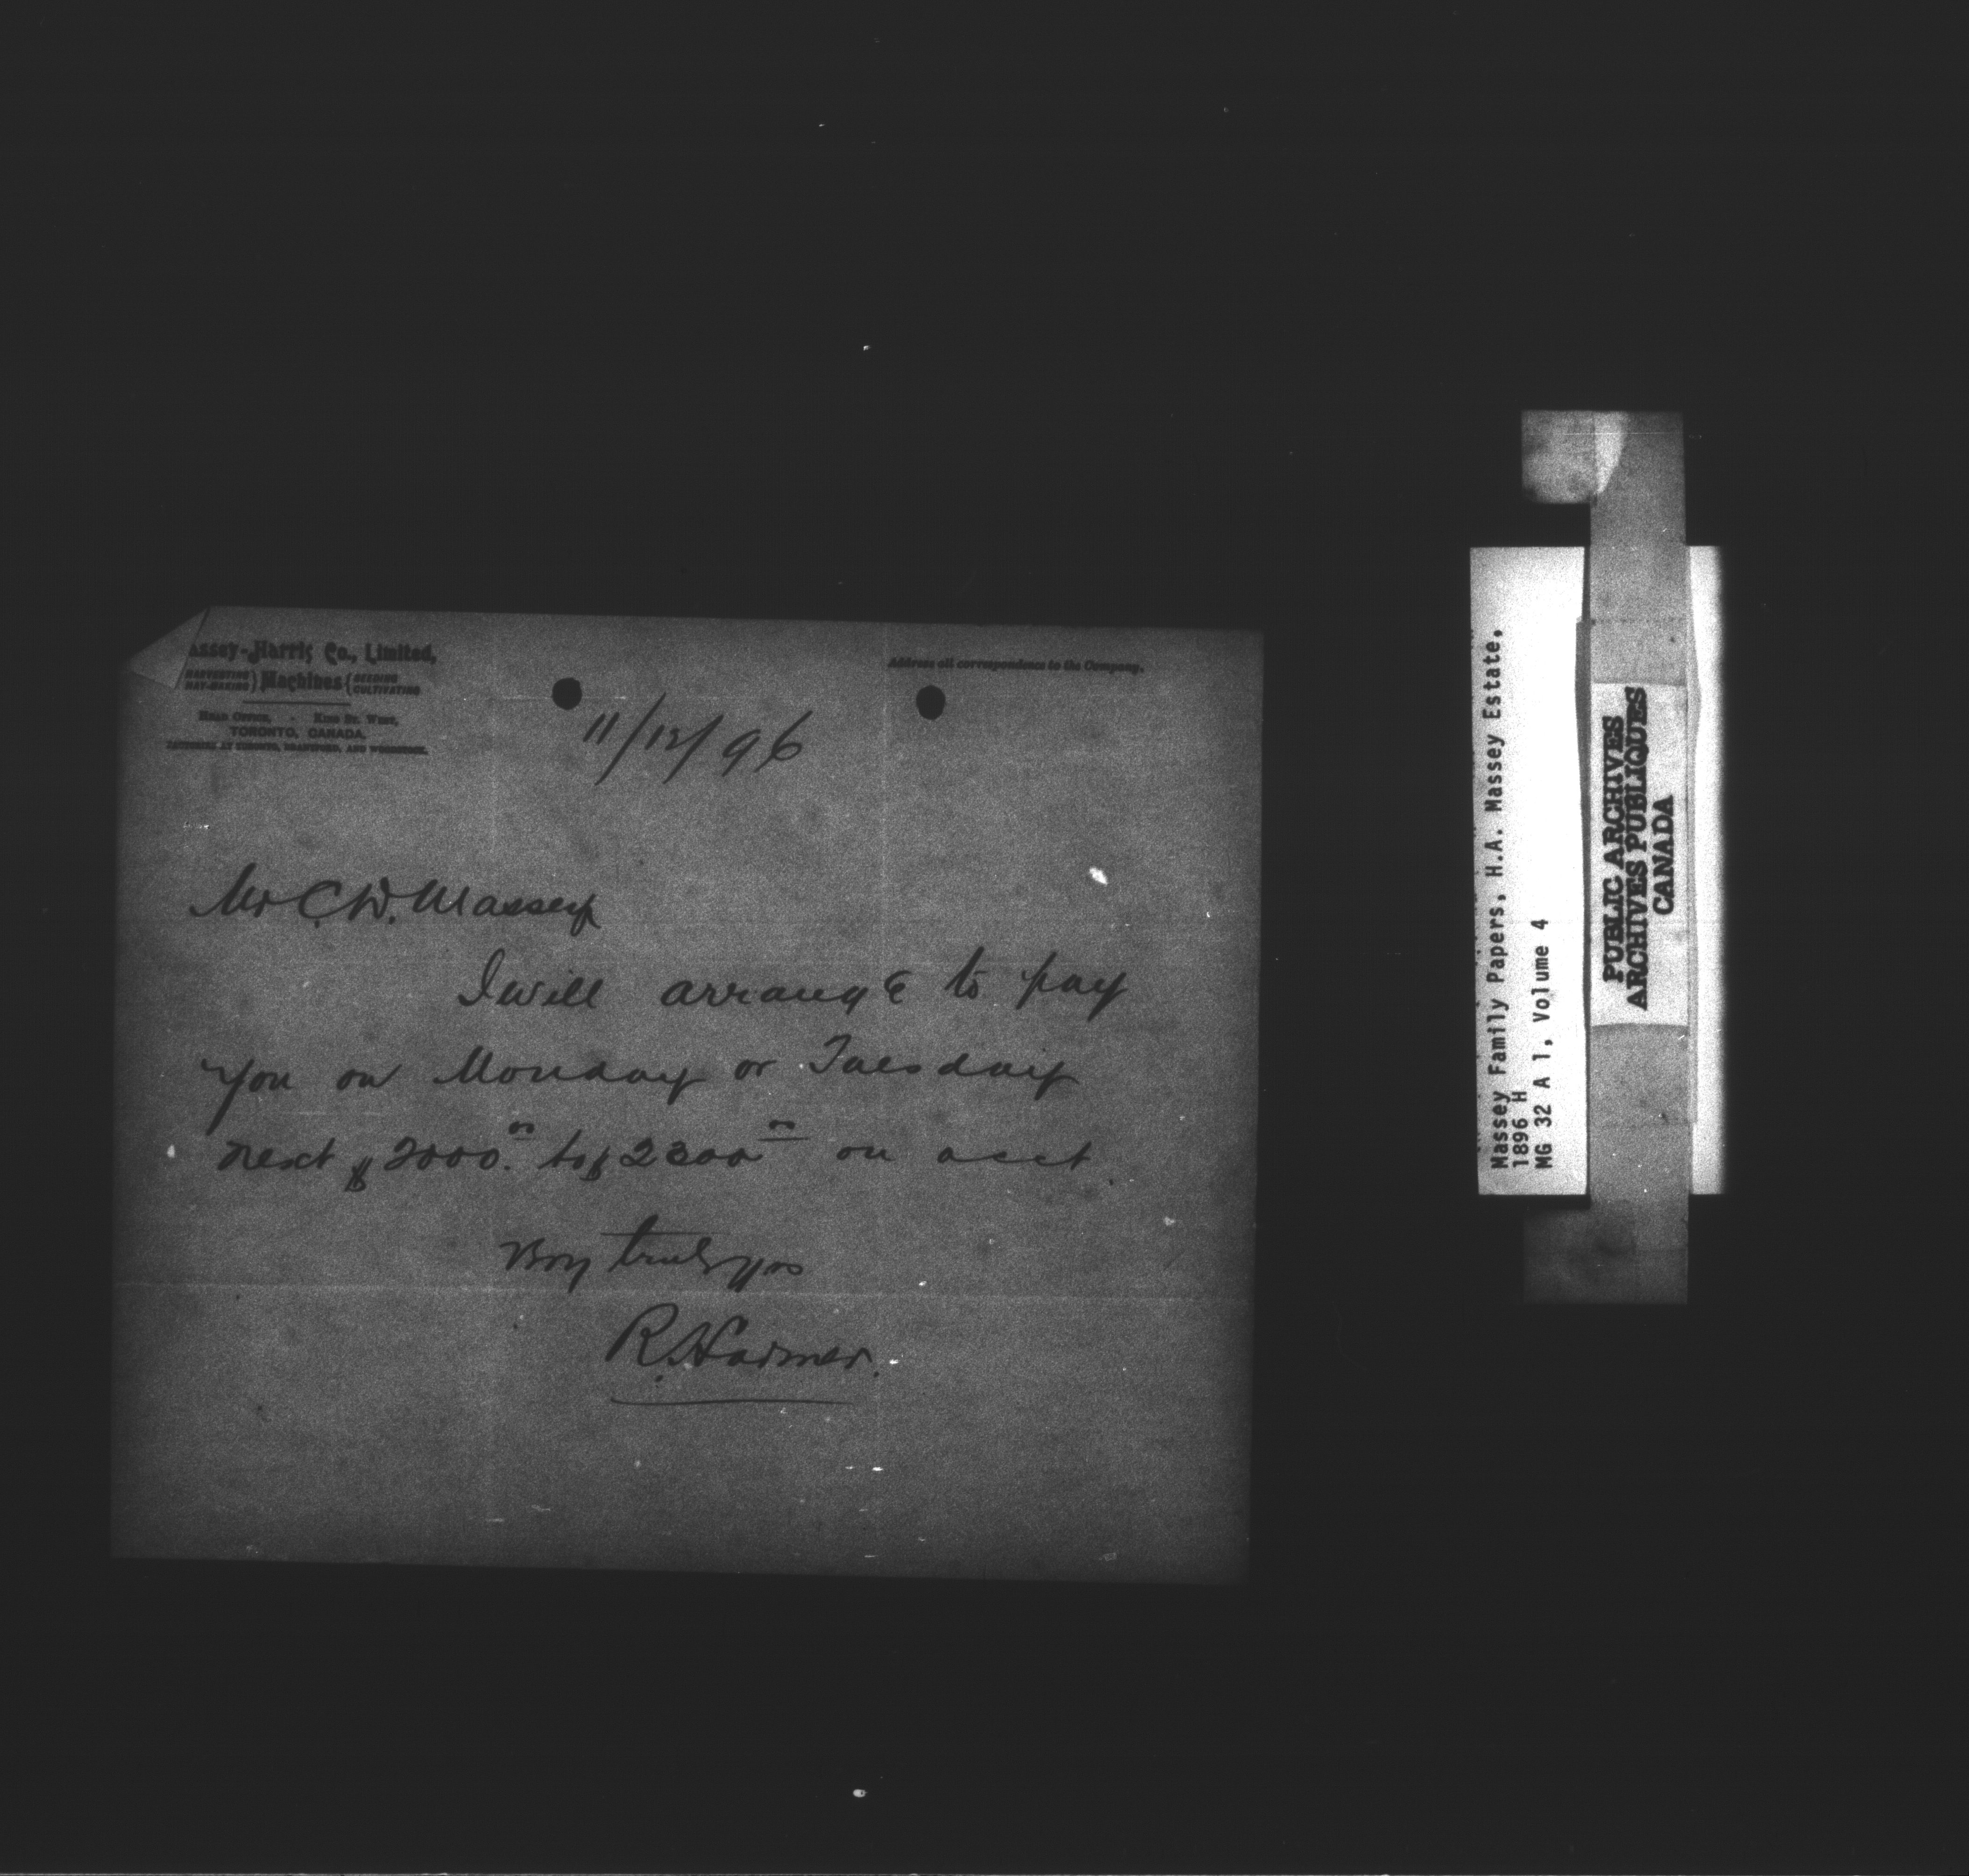 assey-Harris Co., Limited,
HARVESTING HAY-MAKING } Machines { SEEDING CULTIVATING
HEAD OFFICE, - KING ST. WEST,
TORONTO, CANADA.
FACTORIES AT TORONTO, BRANTFORD, AND WOODSTOCK.
Address all correspondence to the Company.
11/12/96
Mr C.D. Massey
I will arrange to pay
you on Monday or Tuesday
next $2000.00 to $2300 00 on acct
Very truly yrs
R. Harmer.
Massey Family Papers, H.A. Massey Estate,
1896 H
MG 32 A 1, Volume 4
PUBLIC ARCHIVES
ARCHIVES PUBLIQUES
CANADA